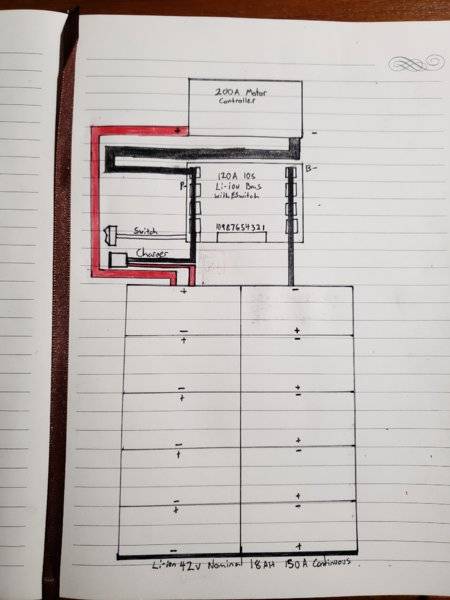 200A Motor
Controller
+
-
B-
P-
120A 10S
Li-ion Bms
with ESwitch
10987654321
Switch
Charger
+ -
- +
+ -
- +
+ -
- +
+ -
- +
+ -
- +
Li-ion 42v Nominal 18AH 150A Continuous